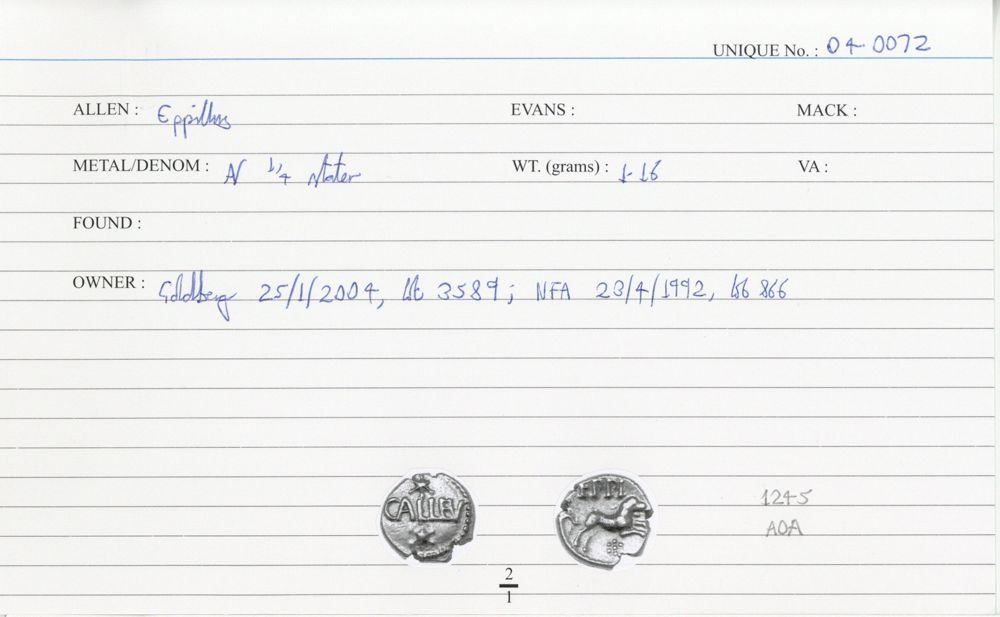 UNIQUE No. : 04-0072
ALLEN : Eppillus EVANS : MACK :
METAL/DENOM : AV 1/4 stater WT. (grams) : 1.16 VA :
FOUND :
OWNER : Goldberg 25/1/2004, lot 3589; NFA 23/4/1992, lot 866
CALLEV
EPPI
1245
AOA
2
1